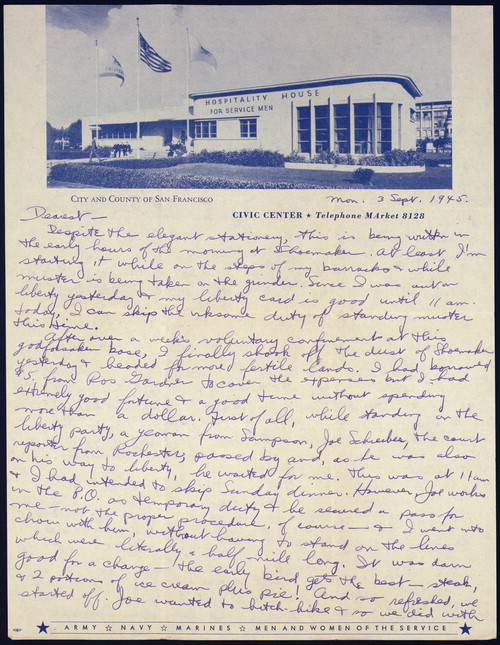 HOSPITALITY HOUSE
FOR SERVICE MEN
CITY AND COUNTY OF SAN FRANCISCO
Mon. 3 Sept. 1945.
CIVIC CENTER ★ Telephone MArket 8128
Dearest—
Despite the elegant stationery, this is being written in
the early hours of the morning at Shoemaker. At least I'm
starting it while on the steps of my barracks & while
muster is being taken on the grinder. Since I was out on
liberty yesterday & my liberty card is good until 11 am.
today, I can skip the irksome duty of standing muster
this time.
After over a week's voluntary confinement at this
godforsaken base, I finally shook off the dust of Shoemaker
yesterday & headed for more fertile lands. I had borrowed
$5. from Ros Gardner to cover the expenses but I had
extremely good fortune & a good time without spending
more than a dollar. First of all, while standing on the
liberty party, a yeoman from Sampson, Joe Schieber, the court
reporter from Rochester, passed by and, as he was also
on his way to liberty, he waited for me. This was at 11 am
& I had intended to skip Sunday dinner. However, Joe works
in the P.O. as temporary duty & he secured a pass for
me — not the proper procedure, of course — & I went into
chow with him, without having to stand on the lines
which were literally a half mile long. It was darn
good for a change — the early bird gets the best — steak,
& 2 portions of ice cream plus pie! And so refreshed, we
started off. Joe wanted to hitch-hike & so we did with
★ ARMY ☆ NAVY ☆ MARINES ☆ MEN AND WOMEN OF THE SERVICE ★